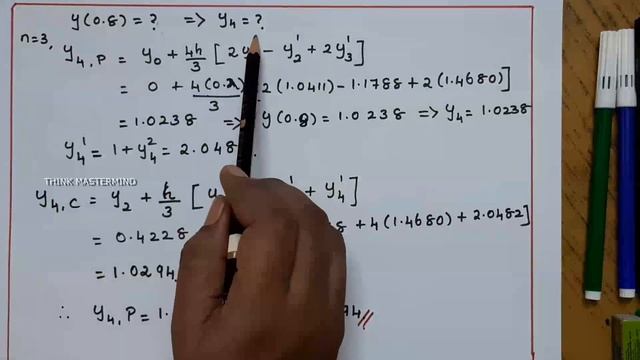 y(0.8) = ? => y4 = ?
n=3, y4,P = y0 + 4h/3 [2y - y2' + 2y3']
= 0 + 4(0.2)/3 2(1.0411) - 1.1788 + 2(1.4680)]
= 1.0238 => y(0.8) = 1.0238 => y4 = 1.0238
y4' = 1 + y4² = 2.048
THINK MASTERMIND
y4,C = y2 + h/3 [y + y4']
= 0.4228 8 + 4(1.4680) + 2.0482]
= 1.0294
∴ y4,P = 1. 94//